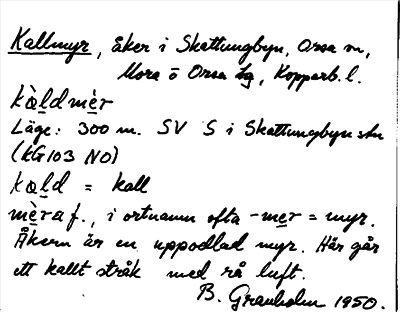 Kallmyr, åker i Skattungbyn, Orsa sn,
Mora o Orsa tg, Kopparb. l.
kàldmèr
Läge: 300 m. SV S i Skattungbyn
(KG103 NO)
kald = kall
mèra f., i ortnamn ofta -mer = myr.
Åkern är en uppodlad myr. Här går
ett kallt stråk med rå luft.
B. Granholm 1950.